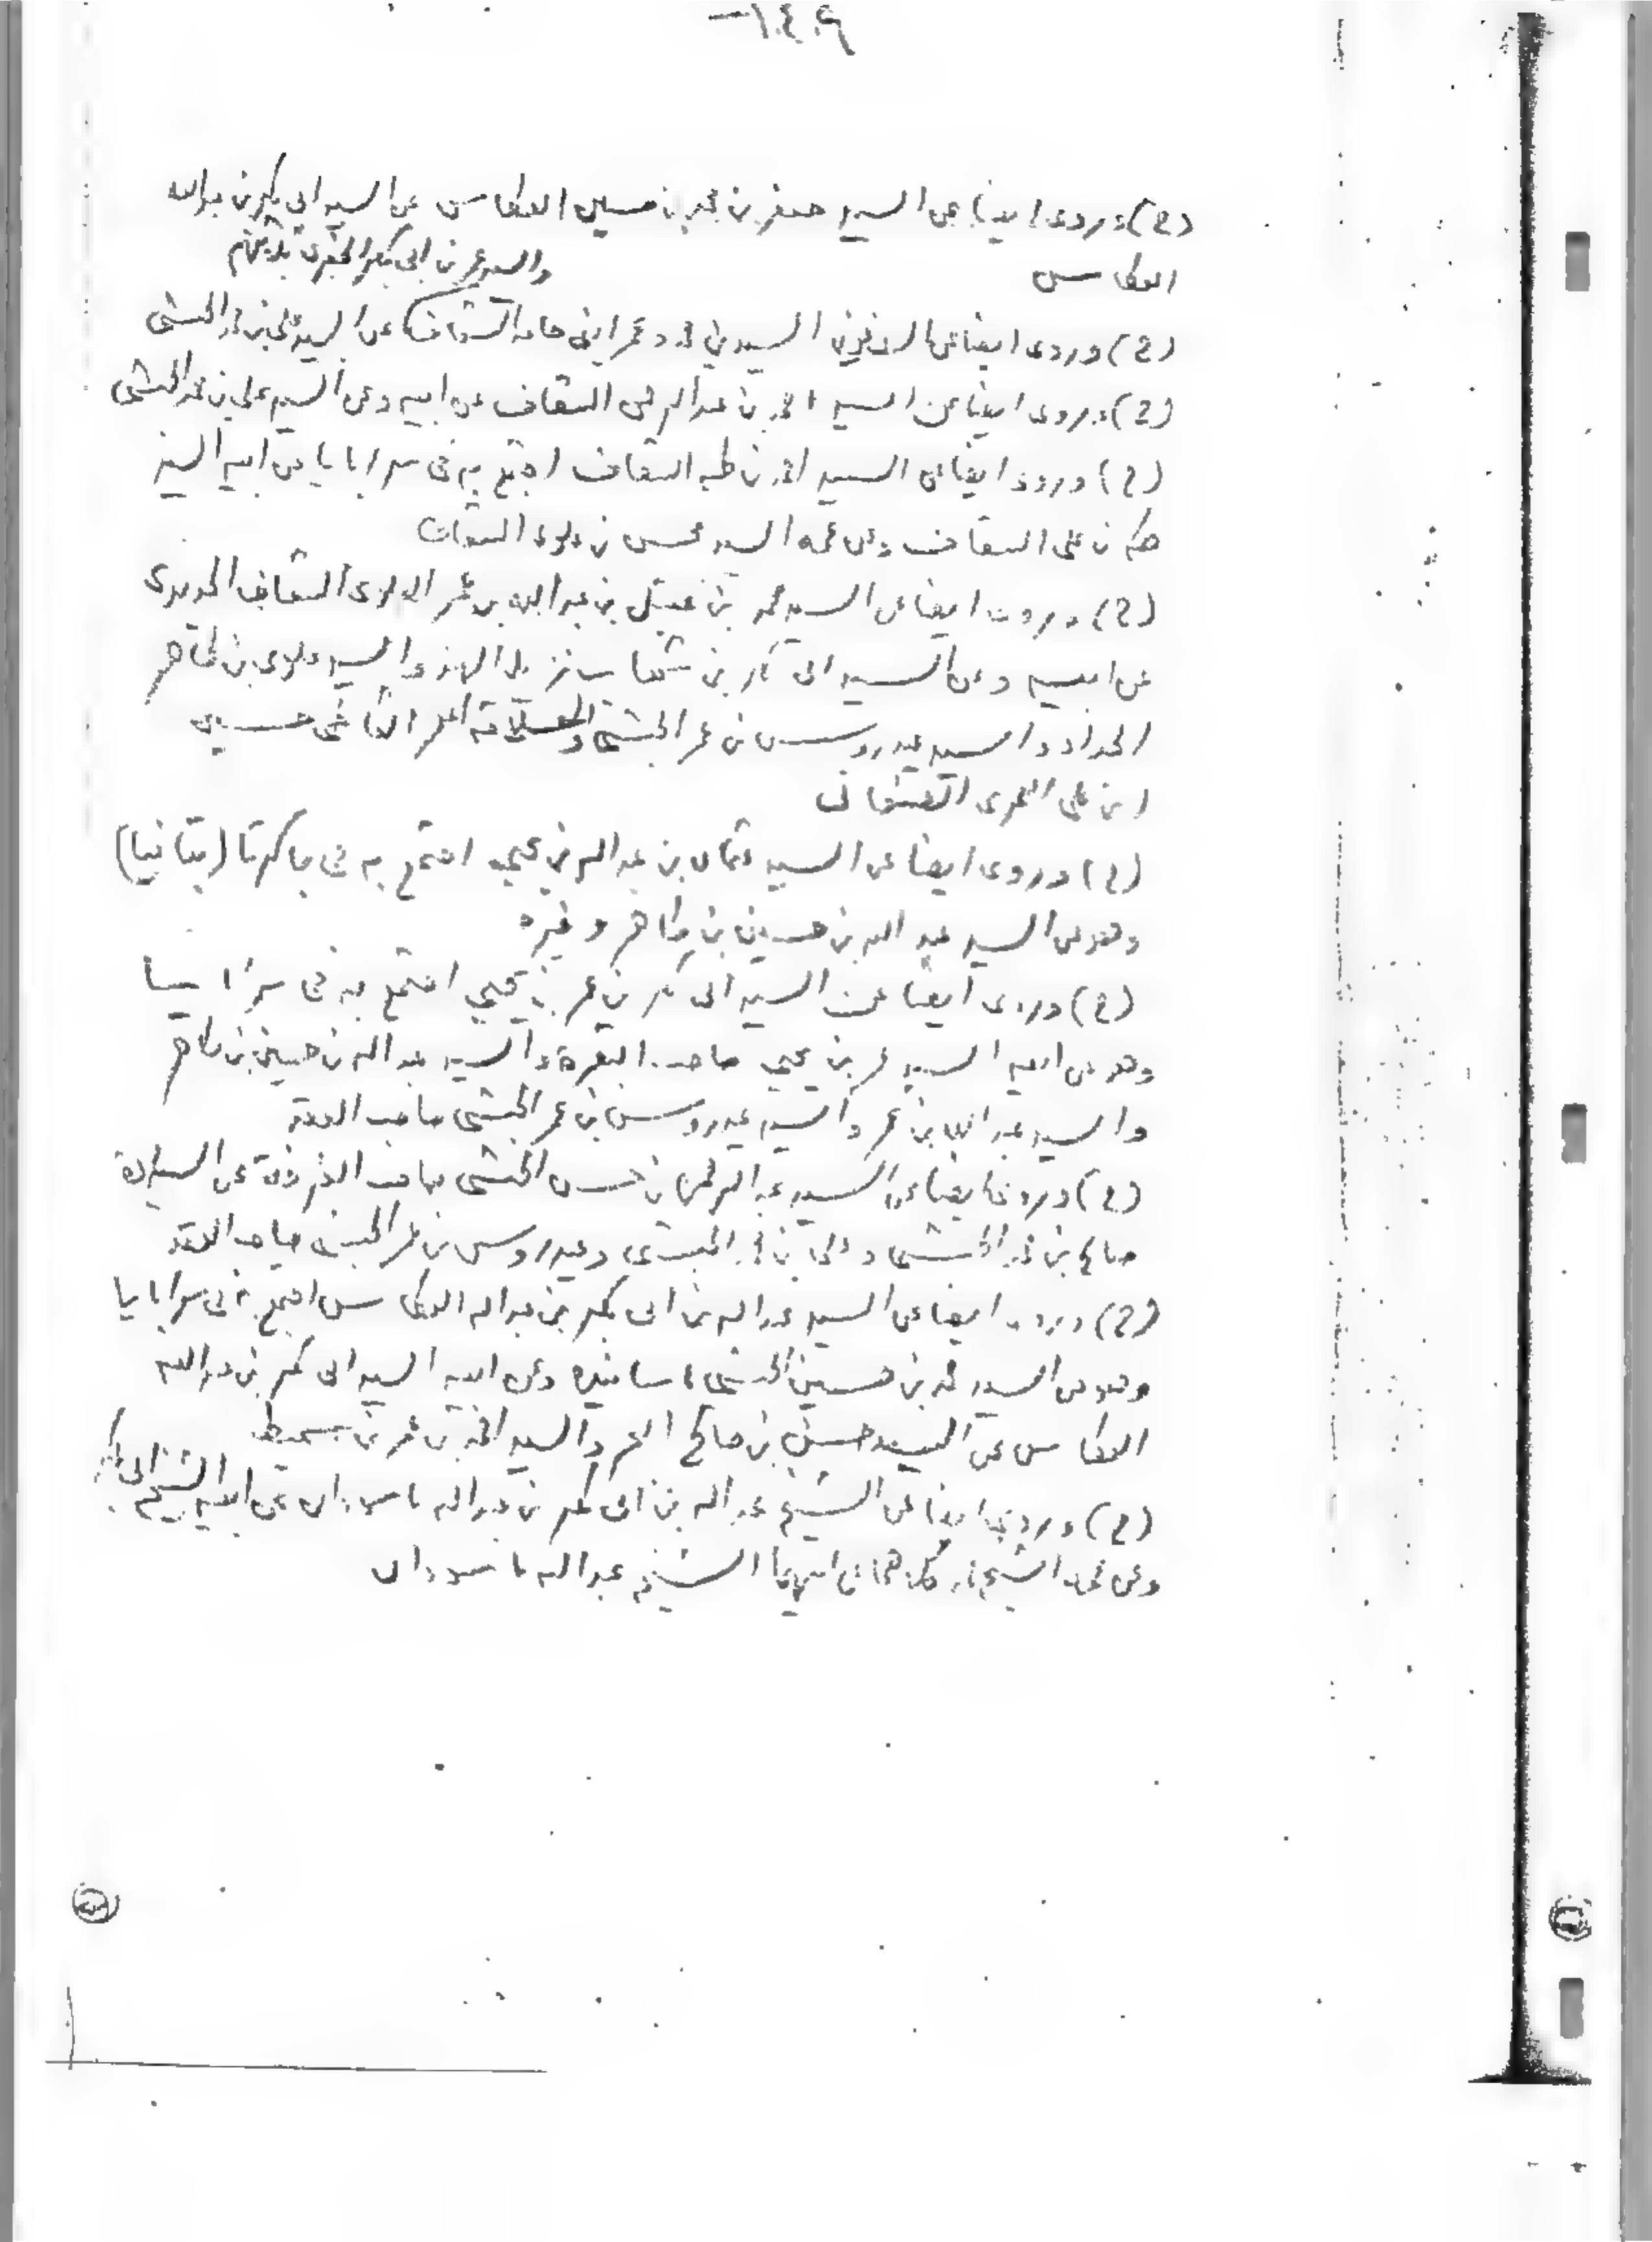 -١٤٩
(٢) وروى ايضا عن السيد جعفر بن محمد بن حسين العطاس عن السيد ابي بكر بن عبدالله
العطاس والسيد عمر بن ابي بكر الجفري
(٢) وروى ايضا عن السيدين محمد وعمر ابني حامد السقاف عن السيد علي بن محمد الحبشي
(٢) وروى ايضا عن السيد احمد بن عبد الرحمن السقاف عن ابيه وعن السيد علي بن محمد الحبشي
(٢) وروى ايضا عن السيد احمد بن طه السقاف اجتمع به في سرابايا عن ابيه السيد
طه بن علي السقاف وعن عمه السيد محسن بن علوي السقاف
(٢) وروى ايضا عن السيد محمد بن عقيل بن عبد الله بن عمر السقاف
عن ابيه وعن السيد ابي بكر بن شهاب نزيل الهند والسيد علوي بن طاهر
الحداد والسيد عيدروس بن عمر الحبشي والعلامة القاضي حسين
ابن علي العمري الصنعاني
(٢) وروى ايضا عن السيد عثمان بن عبدالله بن يحيى اجتمع به في جاكرتا (بتافيا)
وهو عن السيد عبد الله بن حسين بن طاهر وغيره
(٢) وروى ايضا عن السيد ابي بكر بن عمر بن يحيى اجتمع به في سرابايا
وهو عن ابيه السيد عمر بن يحيى صاحب والسيد عبد الله بن حسين بن طاهر
والسيد عبد الله بن عمر والسيد عيدروس بن عمر الحبشي صاحب العقد
(٢) وروى ايضا عن السيد عبد الرحمن بن حسن الحبشي صاحب عن السادة
صالح بن محمد الحبشي وعلي بن محمد الحبشي وعيدروس بن عمر الحبشي صاحب العقد
(٢) وروى ايضا عن السيد عبد الله بن ابي بكر بن عبد الله العطاس اجتمع به في سرابايا
وهو عن السيد محمد بن حسين الحبشي باسانيده وعن ابيه السيد ابي بكر بن عبدالله
العطاس عن السيد حسين بن صالح البحر والسيد احمد بن عمر بن سميط
(٢) وروى ايضا عن الشيخ عبد الله بن ابي بكر بن عبد الله باسودان عن ابيه الشيخ ابي بكر
وعن عمه الشيخ كلاهما عن ابيهما الشيخ عبد الله باسودان